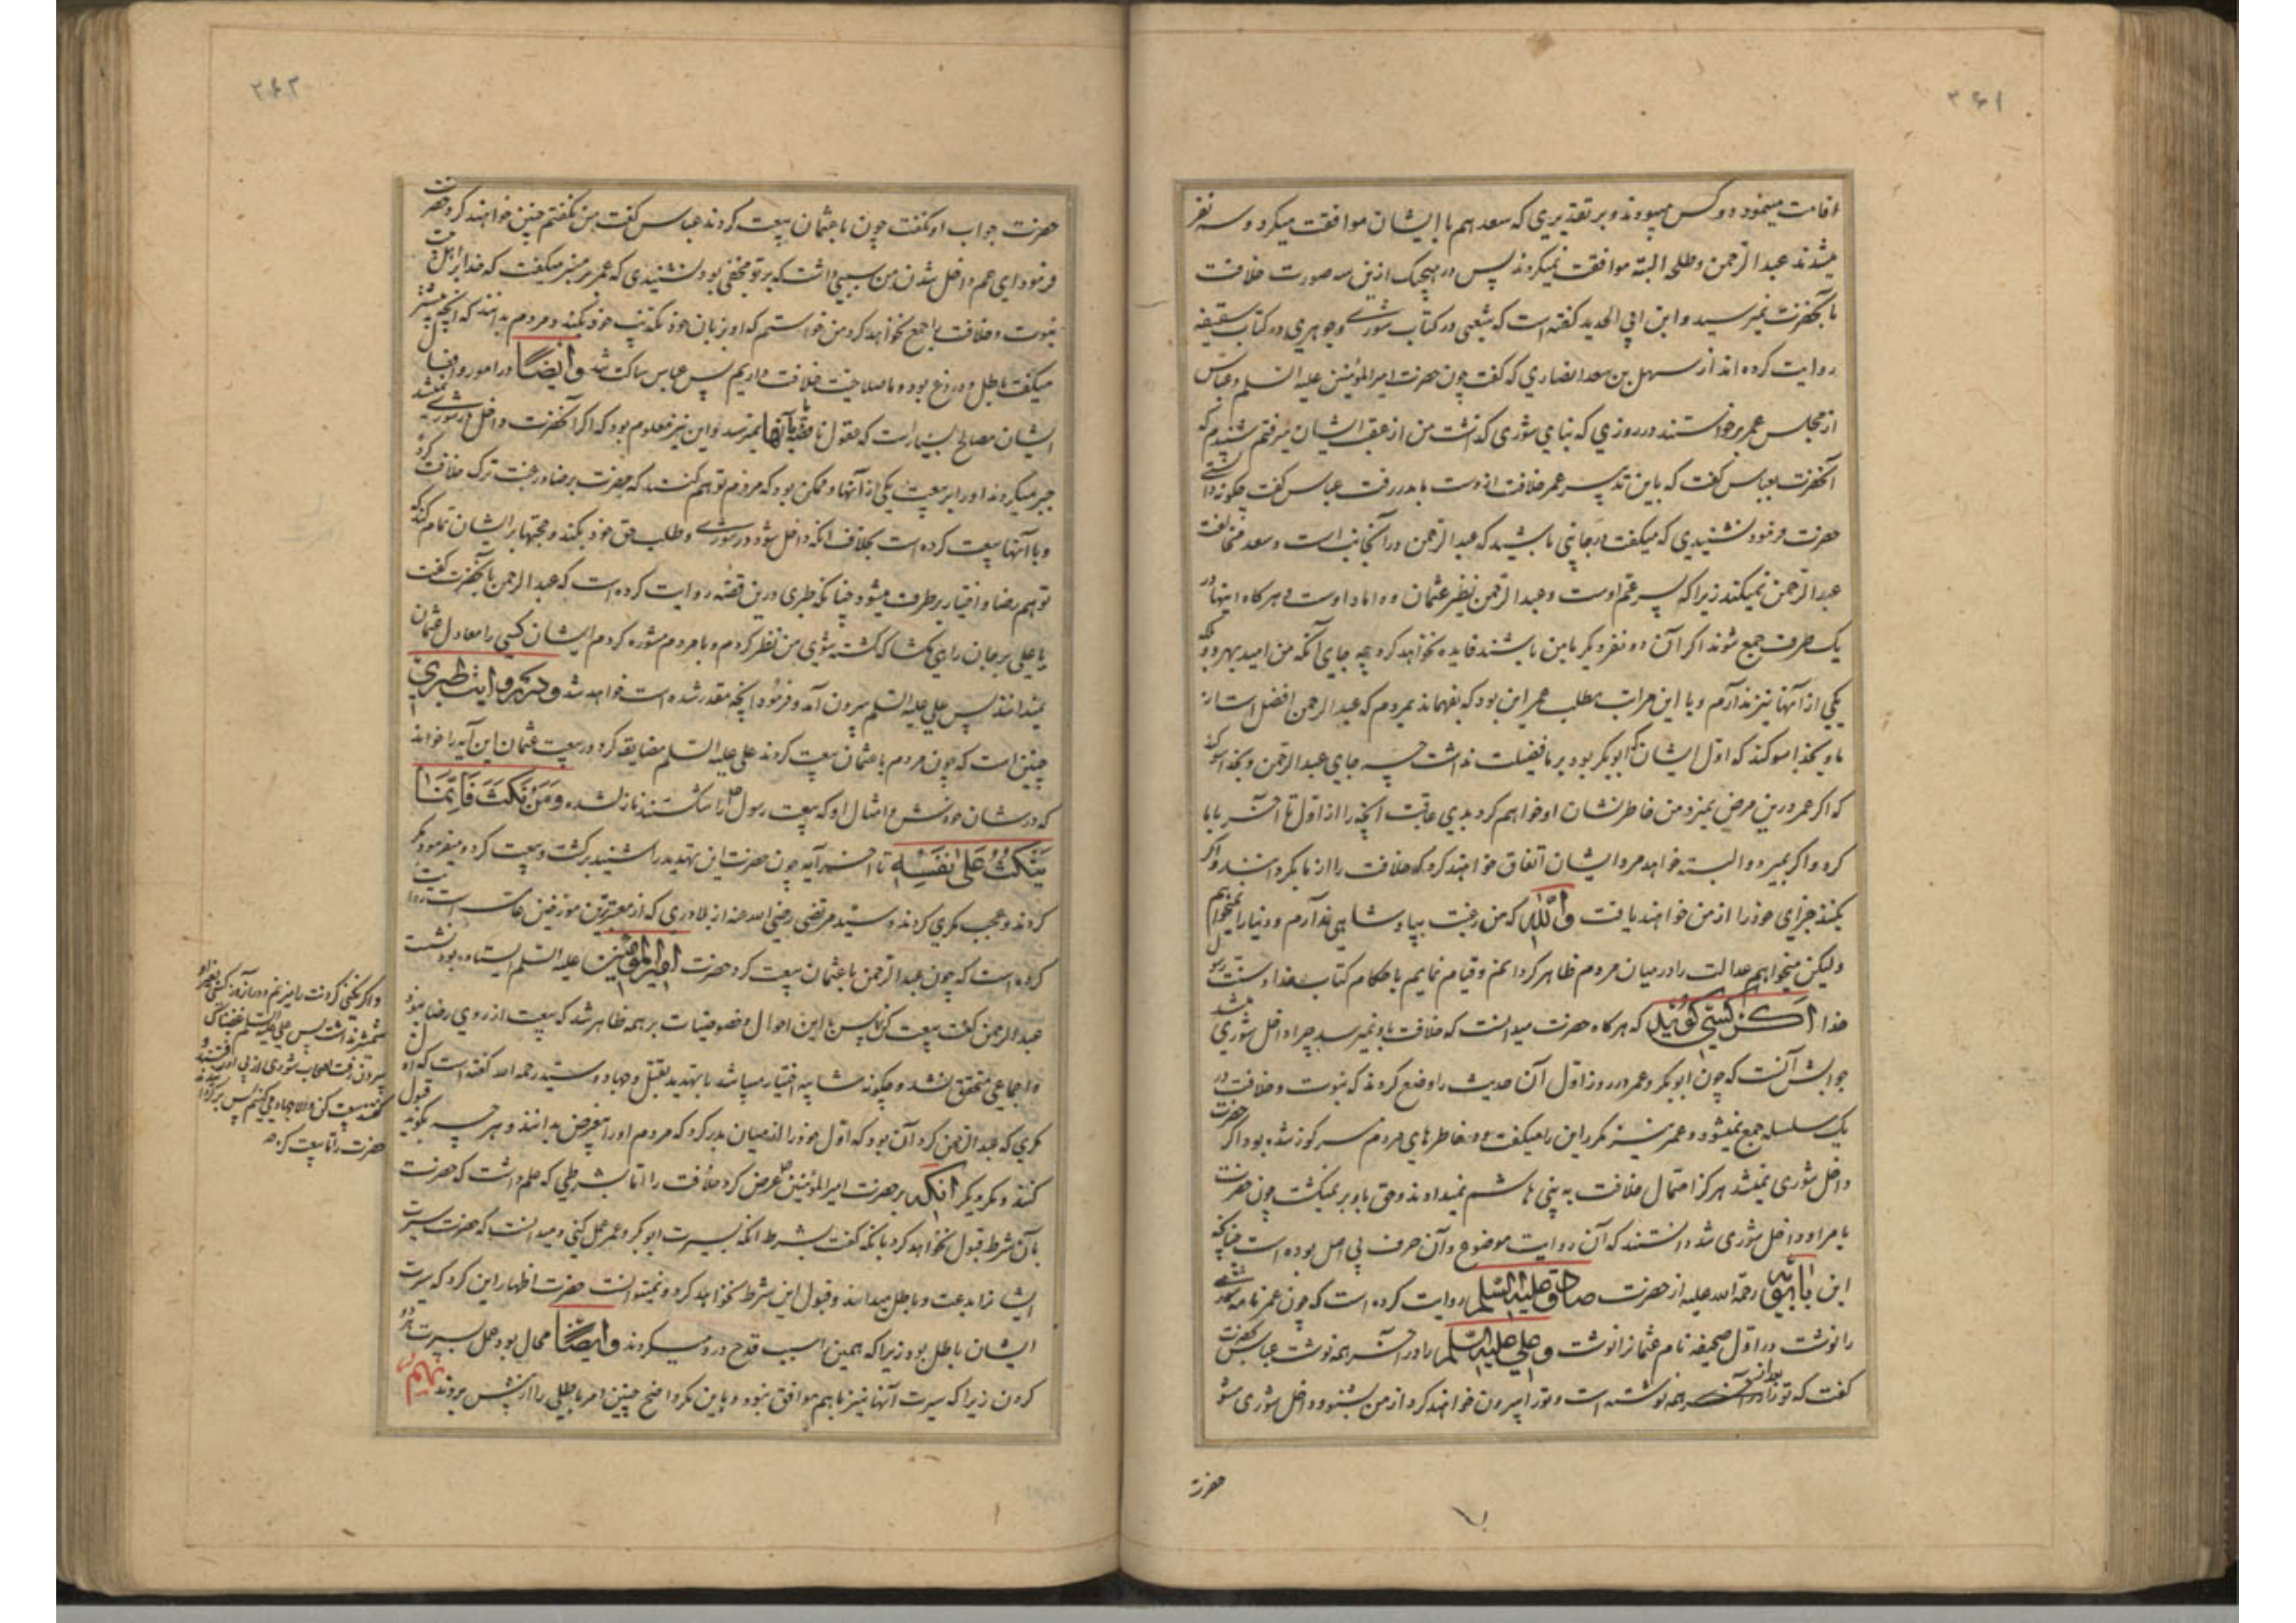 ۳۶۱
اقامت مینمود دو کس میبودند و بر تقدیری که سعد هم با ایشان موافقت میکرد و سه نفر
میشدند عبد الرحمن و طلحه البته موافقت نمیکردند پس در هیچیک ازین سه صورت خلافت
بآنحضرت نمیرسید و ابن ابی الحدید کفته است که شعبی در کتاب شوری و جوهری در کتاب سقیفه
روایت کرده اند از سهل بن سعد انصاری که کفت چون حضرت امیر المؤمنین علیه السلم و عباس
از مجلس عمر برخواستند در روزی که بنای شوری کذاشت من از عقب ایشان میرفتم شنیدم که
آنحضرت بعباس کفت که باین تدبیر عمر خلافت از دست ما بدر رفت عباس کفت چکونه دانستی
حضرت فرمود نشنیدی که میکفت در جانبی باشید که عبد الرحمن در آنجانب است و سعد مخالفت
عبد الرحمن نمیکند زیرا که پسر عم اوست و عبد الرحمن نظیر عثمان و داماد اوست و هرکاه اینها در
یک طرف جمع شوند اکر آن دو نفر دیکر با من باشند فایده نخواهد کرد چه جای آنکه من امید بهر دو بلکه
یکی از آنها نیز ندارم و با این مراتب مطلب عمر این بود که بفهماند بمردم که عبد الرحمن افضل است از
ما و بخدا سوکند که اول ایشان که ابو بکر بود بر ما فضیلت نداشت چه جای عبد الرحمن و بخدا سوکند
که اکر عمر درین مرض نمیرد من خاطر نشان او خواهم کرد بدی عاقبت آنچه را از اول تا آخر با ما
کرد و اکر بمیرد و البته خواهد مرد ایشان اتفاق خواهند کرد که خلافت را از ما بکردانند و اکر
بکنند جزای خود را از من خواهند یافت والله که من رغبت بپادشاهی ندارم و دنیا را نمیخواهم
ولیکن میخواهم عدالت را در میان مردم ظاهر کردانم و قیام نمایم باحکام کتاب خدا و سنت رسول
خدا اکر کسی کوید که هرکاه حضرت میدانست که خلافت باو نمیرسد چرا داخل شوری میشد
جوابش آنست که چون ابو بکر و عمر در روز اول آن حدیث را وضع کردند که نبوت و خلافت در
یک سلسله جمع نمیشود و عمر نیز مکرر این را میکفت و در خاطرهای مردم مرکوز شده بود اکر حضرت
داخل شوری نمیشد هرکز احتمال خلافت به بنی هاشم نمیدادند و حق باو بر نمیکشت چون حضرت
بامر او داخل شوری شد دانستند که آن روایت موضوع و آن حرف بی اصل بوده است چنانچه
ابن بابویه رحمة الله علیه از حضرت صادق علیه السلم روایت کرده است که چون عمر نامه شوری
را نوشت در اول صحیفه نام عثمانرا نوشت و علی علیه السلم را در آخر همه نوشت عباس بحضرت
کفت که ترا در آخر همه نوشته است و ترا بیرون خواهند کرد از من بشنو و داخل شوری مشو
حضرت
۳۶۲
حضرت جواب او نکفت چون با عثمان بیعت کردند عباس کفت من نکفتم چنین خواهند کرد حضرت
فرمود ای عم داخل شدن من سببی داشت که بر تو مخفی بود نشنیدی که عمر بر منبر میکفت که خدا برای اهل بیت
نبوت و خلافت را جمع نخواهد کرد من خواستم که او بزبان خود تکذیب خود بکند و مردم بدانند که آنچه پیشتر
میکفت باطل و دروغ بود و ما صلاحیت خلافت داریم پس عباس ساکت شد وایضا در امور واقعی
ایشان مصالح بسیار است که عقول ناقصه ما بآنها نمیرسد و این نیز معلوم بود که اکر آنحضرت داخل در شوری نمیشد
جبر میکردند او را بر بیعت یکی از آنها و ممکن بود که مردم توهم کنند که حضرت برضا و رغبت ترک خلافت کرد
و با آنها بیعت کرده است بخلاف آنکه داخل شود در شوری و طلب حق خود بکند و حجتها بر ایشان تمام کند که
توهم رضا و اختیار برطرف میشود چنانکه طبری درین قصه روایت کرده است که عبد الرحمن بآنحضرت کفت
یا علی بر جان راهی مکشا که کشته شوی من نظر کردم و با مردم مشوره کردم ایشان کسی را معادل عثمان
نمیدانند پس علی علیه السلم بیرون آمد و فرمود آنچه مقدر شده است خواهد شد و در روایت طبری
چنین است که چون مردم با عثمان بیعت کردند علی علیه السلم مضایقه کرد در بیعت عثمان این آیه را خواند
که در شان خودش و امثال او که بیعت رسول را شکستند نازل شده ومن نكث فانما
ينكث على نفسه تا آخر آیه چون حضرت این تهدید را شنید برکشت و بیعت کرد و میفرمود مکر
کردند و عجب مکری کردند و سید مرتضی رضی الله عنه از بلاذری که از معتبرترین مورخین عامه است روایت
کرده است که چون عبد الرحمن با عثمان بیعت کرد حضرت امیر المؤمنین علیه السلم ایستاده بود نشست
عبد الرحمن کفت بیعت کن پس با این احوال و خصوصیات بر همه ظاهر شد که بیعت از روی رضا نبود
و اجماعی متحقق نشد و چکونه مشابه اختیار میباشد با تهدید بقتل و جهاد و سید رحمه الله کفته است که اول
مکری که عبد الرحمن کرد آن بود که اول خود را از میان بدر کرد که مردم او را بیغرض بدانند و هرچه بکوید قبول
کنند و مکر دیکر آنکه بر حضرت امیر المؤمنین عرض کرد خلافت را اما بشرطی که علم داشت که حضرت
بآن شرط قبول نخواهد کرد بآنکه کفت بشرط آنکه بسیرت ابو بکر و عمر عمل کنی و میدانست که حضرت سیرت
ایشانرا بدعت و باطل میداند و قبول این شرط نخواهد کرد و نمیتوانست حضرت اظهار این کرد که سیرت
ایشان باطل بود زیرا که بهمین سبب قدح در و میکردند وایضا محال بود عمل بسیرت هر دو
کردن زیرا که سیرت آنها نیز با هم موافق نبود و باین مکر واضح چنین امر باطلی را از پیش بردند
و اکر نکنی کردنت را میزنم و در آنروز کسی بغیر او
شمشیر نداشت پس علی علیه السلم غضبناک
بیرون رفت اصحاب شوری از پی او رفتند و
کفتند بیعت کن والا جهاد میکنیم پس برکردانیدند
حضرت را تا بیعت کرد